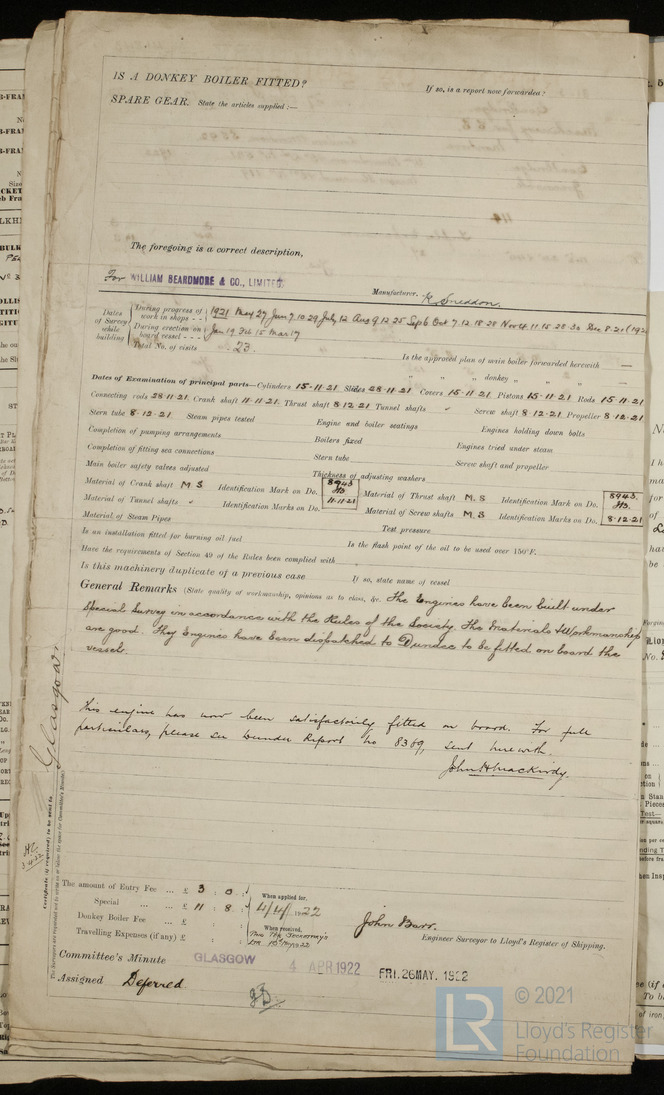 IS A DONKEY BOILER FITTED?
If so, is a report now forwarded?
SPARE GEAR. State the articles supplied :—
The foregoing is a correct description,
For WILLIAM BEARDMORE & CO., LIMITED
Manufacturer.
Dates of Survey while building
During progress of work in shops - - 1921 May 27 Jun 7.10 29 July 12 Aug 9.12 25 Sep 6 Oct 7.12.18 28 Nov 4.11.15 28.30 Dec 8.21
During erection on board vessel - - - Jan 19 Feb 15 Mar 17
Total No. of visits 23.
Is the approved plan of main boiler forwarded herewith —
" " " donkey " " " —
Dates of Examination of principal parts—Cylinders 15-11-21 Slides 28-11-21. Covers 15-11-21. Pistons 15-11-21. Rods 15-11-21
Connecting rods 28-11-21. Crank shaft 11-11-21. Thrust shaft 8-12-21 Tunnel shafts " Screw shaft 8-12-21. Propeller 8-12-21
Stern tube 8-12-21 Steam pipes tested Engine and boiler seatings Engines holding down bolts
Completion of pumping arrangements Boilers fixed Engines tried under steam
Completion of fitting sea connections Stern tube Screw shaft and propeller
Main boiler safety valves adjusted Thickness of adjusting washers
Material of Crank shaft M S Identification Mark on Do. 8943 11-11-21 Material of Thrust shaft M.S Identification Mark on Do. 8943.
Material of Tunnel shafts " Identification Marks on Do. Material of Screw shafts M.S Identification Marks on Do. 8-12-21
Material of Steam Pipes Test pressure
Is an installation fitted for burning oil fuel Is the flash point of the oil to be used over 150°F.
Have the requirements of Section 49 of the Rules been complied with
Is this machinery duplicate of a previous case If so, state name of vessel
General Remarks (State quality of workmanship, opinions as to class, &c. The Engines have been built under
Special Survey in accordance with the Rules of the Society. The Materials & Workmanship
are good. They Engines have been dispatched to Dundee to be fitted on board the
vessel.
This engine has now been satisfactorily fitted on board. For full
particulars, please see Dundee Report No 8369, sent herewith.
Glasgow
Certificate (if required) to be sent to
The amount of Entry Fee ... £ 3 : 0 :
Special ... ... £ 11 : 8 :
Donkey Boiler Fee ... £ : :
Travelling Expenses (if any) £ : :
When applied for,
4/4/1922
When received,
John Barr.
Engineer Surveyor to Lloyd's Register of Shipping.
Committee's Minute GLASGOW 4 APR 1922 FRI. 26 MAY. 1922
Assigned Deferred.
© 2021
Lloyd's Register
Foundation
LR